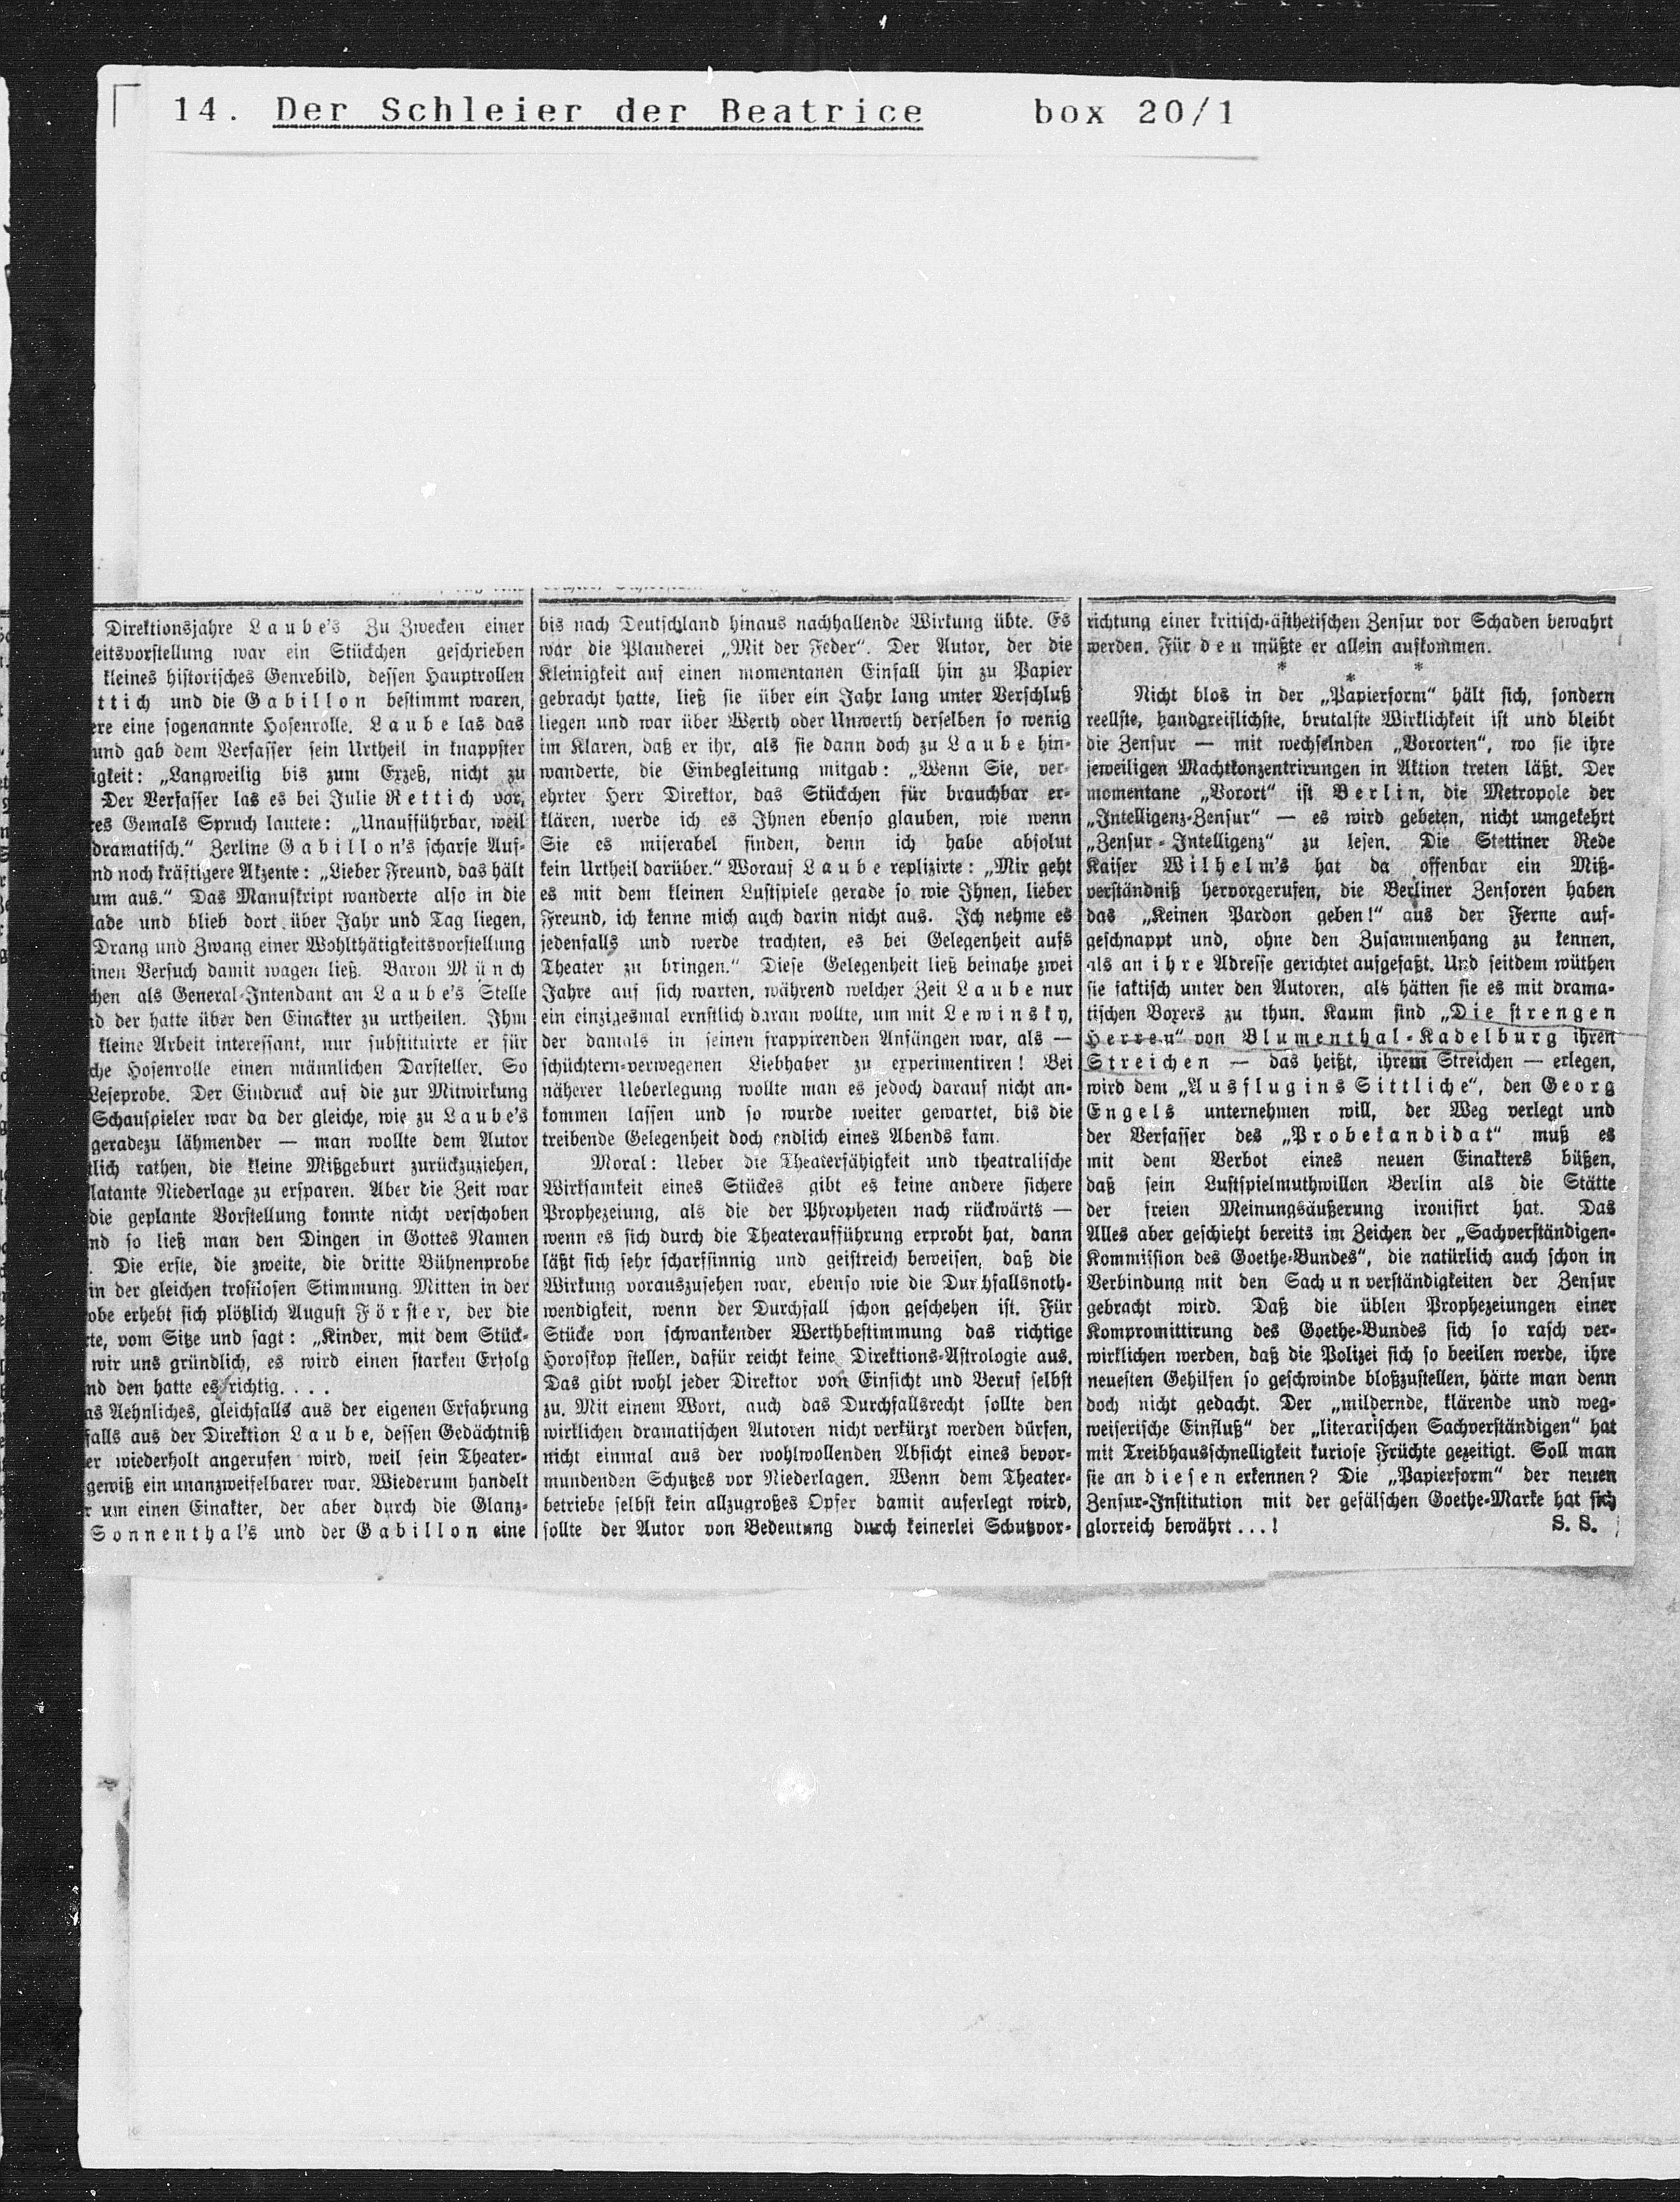 14. Der Schleier der Beatrice box 20/1
Direktionsjahre Laube's Zu Zwecken einer
eitsvorstellung war ein Stückchen geschrieben
kleines historisches Genrebild, dessen Hauptrollen
ttich und die Gabillon bestimmt waren,
ere eine sogenannte Hosenrolle. Laube las das
und gab dem Verfasser sein Urtheil in knappster
igkeit: „Langweilig bis zum Exzeß, nicht zu
Der Verfasser las es bei Julie Rettich vor,
res Gemals Spruch lautete: „Unaufführbar, weil
dramatisch.“ Zerline Gabillon's scharfe Auf-
nd noch kräftigere Akzente: „Lieber Freund, das hält
um aus.“ Das Manuskript wanderte also in die
lade und blieb dort über Jahr und Tag liegen,
Drang und Zwang einer Wohlthätigkeitsvorstellung
inen Versuch damit wagen ließ. Baron Münch
chen als General-Intendant an Laube's Stelle
nd der hatte über den Einakter zu urtheilen. Ihm
kleine Arbeit interessant, nur substituirte er für
che Hosenrolle einen männlichen Darsteller. So
Leseprobe. Der Eindruck auf die zur Mitwirkung
Schauspieler war da der gleiche, wie zu Laube's
geradezu lähmender — man wollte dem Autor
tlich rathen, die kleine Mißgeburt zurückzuziehen,
latante Niederlage zu ersparen. Aber die Zeit war
die geplante Vorstellung konnte nicht verschoben
nd so ließ man den Dingen in Gottes Namen
. Die erste, die zweite, die dritte Bühnenprobe
in der gleichen trostlosen Stimmung. Mitten in der
obe erhebt sich plötzlich August Förster, der die
rte, vom Sitze und sagt: „Kinder, mit dem Stück-
wir uns gründlich, es wird einen starken Erfolg
nd den hatte es richtig. . . .
as Aehnliches, gleichfalls aus der eigenen Erfahrung
falls aus der Direktion Laube, dessen Gedächtniß
er wiederholt angerufen wird, weil sein Theater-
gewiß ein unanzweifelbarer war. Wiederum handelt
r um einen Einakter, der aber durch die Glanz-
Sonnenthal's und der Gabillon eine
bis nach Deutschland hinaus nachhallende Wirkung übte. Es
war die Plauderei „Mit der Feder“. Der Autor, der die
Kleinigkeit auf einen momentanen Einfall hin zu Papier
gebracht hatte, ließ sie über ein Jahr lang unter Verschluß
liegen und war über Werth oder Unwerth derselben so wenig
im Klaren, daß er ihr, als sie dann doch zu Laube hin-
wanderte, die Einbegleitung mitgab: „Wenn Sie, ver-
ehrter Herr Direktor, das Stückchen für brauchbar er-
klären, werde ich es Ihnen ebenso glauben, wie wenn
Sie es miserabel finden, denn ich habe absolut
kein Urtheil darüber.“ Worauf Laube replizirte: „Mir geht
es mit dem kleinen Lustspiele gerade so wie Ihnen, lieber
Freund, ich kenne mich auch darin nicht aus. Ich nehme es
jedenfalls und werde trachten, es bei Gelegenheit aufs
Theater zu bringen.“ Diese Gelegenheit ließ beinahe zwei
Jahre auf sich warten, während welcher Zeit Laube nur
ein einzigesmal ernstlich daran wollte, um mit Lewinsky,
der damals in seinen frappirenden Anfängen war, als —
schüchtern-verwegenen Liebhaber zu experimentiren! Bei
näherer Ueberlegung wollte man es jedoch darauf nicht an-
kommen lassen und so wurde weiter gewartet, bis die
treibende Gelegenheit doch endlich eines Abends kam.
Moral: Ueber die Theaterfähigkeit und theatralische
Wirksamkeit eines Stückes gibt es keine andere sichere
Prophezeiung, als die der Phropheten nach rückwärts —
wenn es sich durch die Theateraufführung erprobt hat, dann
läßt sich sehr scharfsinnig und geistreich beweisen, daß die
Wirkung vorauszusehen war, ebenso wie die Durchfallsnoth-
wendigkeit, wenn der Durchfall schon geschehen ist. Für
Stücke von schwankender Werthbestimmung das richtige
Horoskop stellen, dafür reicht keine Direktions-Astrologie aus.
Das gibt wohl jeder Direktor von Einsicht und Beruf selbst
zu. Mit einem Wort, auch das Durchfallsrecht sollte den
wirklichen dramatischen Autoren nicht verkürzt werden dürfen,
nicht einmal aus der wohlwollenden Absicht eines bevor-
mundenden Schutzes vor Niederlagen. Wenn dem Theater-
betriebe selbst kein allzugroßes Opfer damit auferlegt wird,
sollte der Autor von Bedeutung durch keinerlei Schutzvor-
richtung einer kritisch-ästhetischen Zensur vor Schaden bewahrt
werden. Für den müßte er allein aufkommen.
* * *
Nicht blos in der „Papierform“ hält sich, sondern
reellste, handgreiflichste, brutalste Wirklichkeit ist und bleibt
die Zensur — mit wechselnden „Vororten“, wo sie ihre
jeweiligen Machtkonzentrirungen in Aktion treten läßt. Der
momentane „Vorort“ ist Berlin, die Metropole der
„Intelligenz-Zensur“ — es wird gebeten, nicht umgekehrt
„Zensur-Intelligenz“ zu lesen. Die Stettiner Rede
Kaiser Wilhelm's hat da offenbar ein Miß-
verständniß hervorgerufen, die Berliner Zensoren haben
das „Keinen Pardon geben!“ aus der Ferne auf-
geschnappt und, ohne den Zusammenhang zu kennen,
als an ihre Adresse gerichtet aufgefaßt. Und seitdem wüthen
sie faktisch unter den Autoren, als hätten sie es mit drama-
tischen Boxers zu thun. Kaum sind „Die strengen
Herren“ von Blumenthal-Kadelburg ihren
Streichen — das heißt, ihrem Streichen — erlegen,
wird dem „Ausflug ins Sittliche“, den Georg
Engels unternehmen will, der Weg verlegt und
der Verfasser des „Probekandidat“ muß es
mit dem Verbot eines neuen Einakters büßen,
daß sein Lustspielmuthwillen Berlin als die Stätte
der freien Meinungsäußerung ironisirt hat. Das
Alles aber geschieht bereits im Zeichen der „Sachverständigen-
Kommission des Goethe-Bundes“, die natürlich auch schon in
Verbindung mit den Sachunverständigkeiten der Zensur
gebracht wird. Daß die üblen Prophezeiungen einer
Kompromittirung des Goethe-Bundes sich so rasch ver-
wirklichen werden, daß die Polizei sich so beeilen werde, ihre
neuesten Gehilfen so geschwinde bloßzustellen, hätte man denn
doch nicht gedacht. Der „mildernde, klärende und weg-
weiserische Einfluß“ der „literarischen Sachverständigen“ hat
mit Treibhausschnelligkeit kuriose Früchte gezeitigt. Soll man
sie an diesen erkennen? Die „Papierform“ der neuen
Zensur-Institution mit der gefälschen Goethe-Marke hat sich
glorreich bewährt . . . ! S. S.